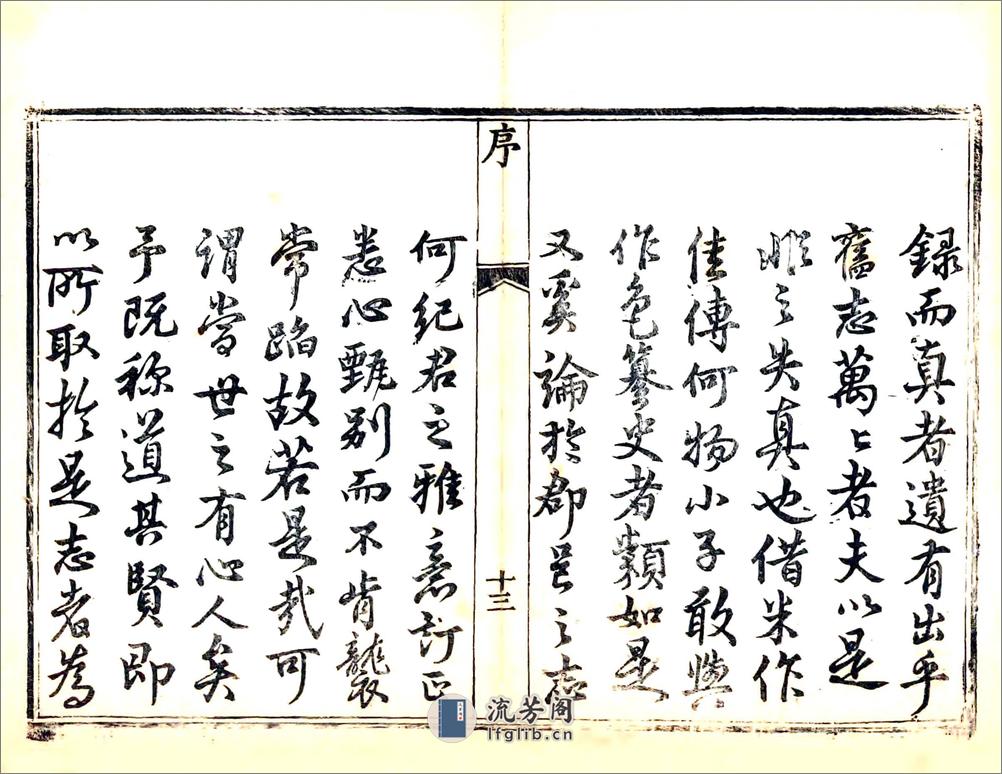 錄而真者遺有出乎
舊志萬々者夫以是
非之失真也借米作
佳傳何物小子敢與
作色纂史者類如是
又奚論於郡邑之志
序
十三
何紀君之雅意訂正
悉心甄別而不肯襲
常蹈故若是哉可
謂當世之有心人矣
予既称道其賢即
以所取於是志者為
流芳阁
lfglib.cn